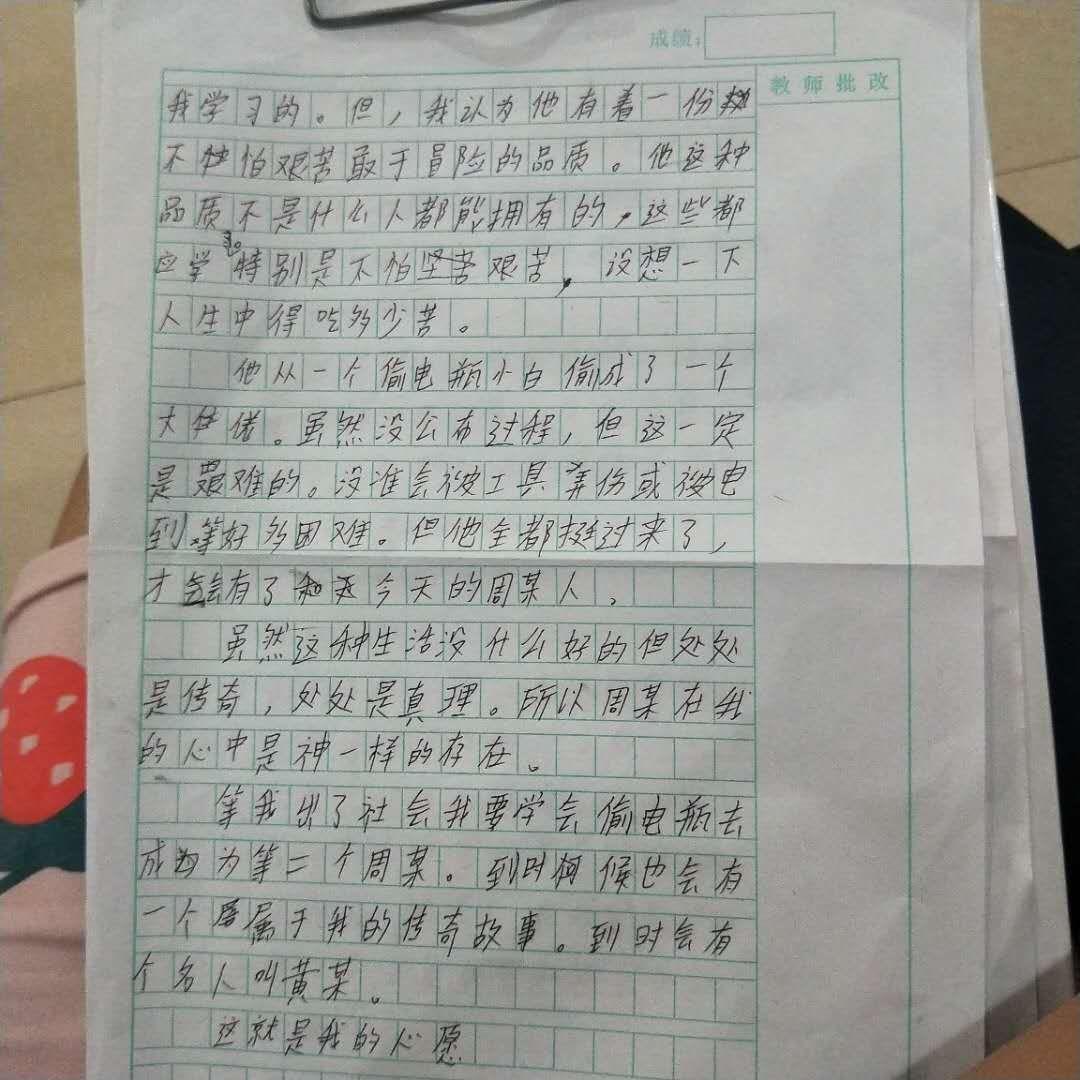 成绩:
教师批改
我学习的。但,我认为他有着一份
不怕艰苦敢于冒险的品质。他这种
品质不是什么人都能拥有的,这些都
应学习。特别是不怕坚苦艰苦,设想一下
人生中得吃多少苦。
他从一个偷电瓶小白偷成了一个
大佬。虽然没公布过程,但这一定
是艰难的。没准会被工具弄伤或被电
到等好多困难。但他全都挺过来了,
才会有了今天的周某人,
虽然这种生活没什么好的但处处
是传奇,处处是真理。所以周某在我
的心中是神一样的存在。
等我出了社会我要学会偷电瓶去
成为等二个周某。到时候也会有
一个属于我的传奇故事。到时会有
个名人叫黄某。
这就是我的心愿